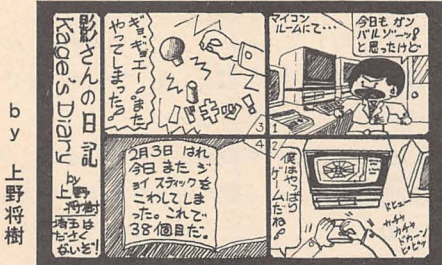 by 上野将樹
影さんの日記
Kage's Diary
by
上野
将樹
埼玉は
ださく
ないぞ!
マイコン
ルームにて・・・
今日も ガン
バルゾーッ!
と思ったけど
1
2
僕はやっぱり
ゲームだね。
ドヒュー
カチャ
カチャ
ドカーン
ピピッ
3
ギョギョエー!。また
やってしまった。
バキッ!
4
2月3日 はれ
今日 また ジ
ョイ スティックを
こわしてしま
った。これで
38個目だ。